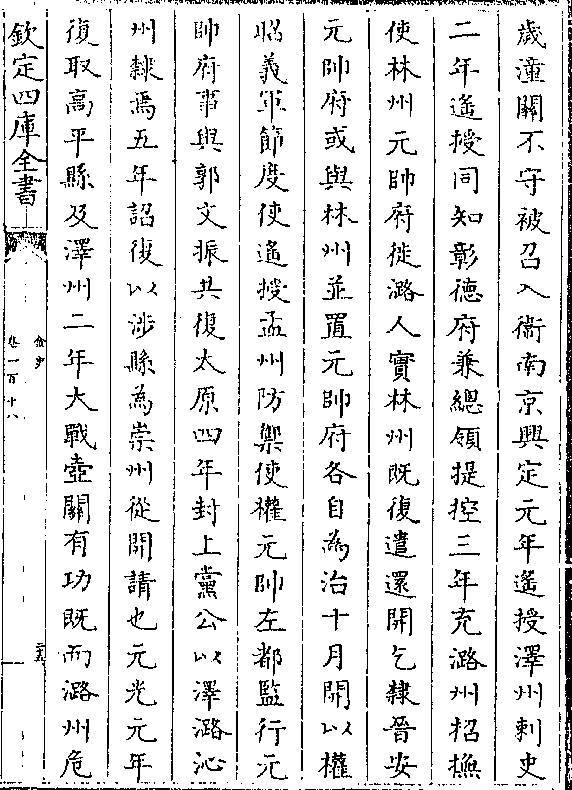 歲潼關不守被召入衛南京興定元年遙授澤州刺史
二年遙授同知彰德府兼總領提控三年充潞州招撫
使林州元帥府徙潞人實林州既復遣還開乞隸晉安
元帥府或與林州並置元帥府各自為治十月開以權
昭義軍節度使遙授孟州防禦使權元帥左都監行元
帥府事與郭文振共復太原四年封上黨公以澤潞沁
州隸焉五年詔復以涉縣為崇州從開請也元光元年
復取高平縣及澤州二年大戰壺關有功既而潞州危
欽定四庫全書
金史
卷一百十八